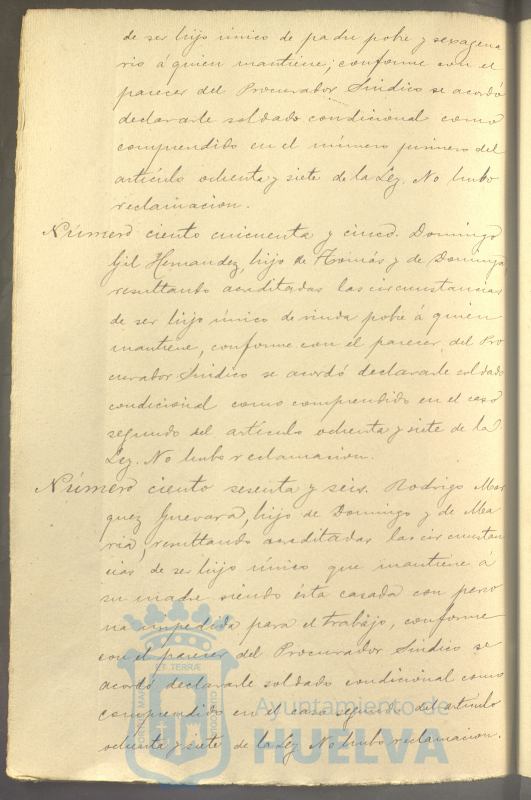 de ser hijo único de padre pobre y sexagena
rio á quien mantiene; conforme con el
parecer del Procurador Síndico se acordó
declararle soldado condicional como
comprendido en el número primero del
artículo ochenta y siete de la Ley. No hubo
reclamacion.
Número ciento cincuenta y cinco. Domingo
Gil Hernandez, hijo de Tomás y de Dominga,
resultando acreditadas las circunstancias
de ser hijo único de viuda pobre á quien
mantiene, conforme con el parecer del Pro
curador Síndico se acordó declararle soldado
condicional como comprendido en el caso
segundo del artículo ochenta y siete de la
Ley. No hubo reclamacion.
Número ciento sesenta y seis. Rodrigo Mar
quez Guevara, hijo de Domingo y de Ma
ria, resultando acreditadas las circunstan
cias de ser hijo único que mantiene á
su madre siendo ésta casada con perso
na impedida para el trabajo, conforme
con el parecer del Procurador Síndico se
acordó declararle soldado condicional como
comprendido en el caso segundo del artículo
ochenta y siete de la Ley. No hubo reclamacion.
ET TERRÆ
Ayuntamiento de
HUELVA